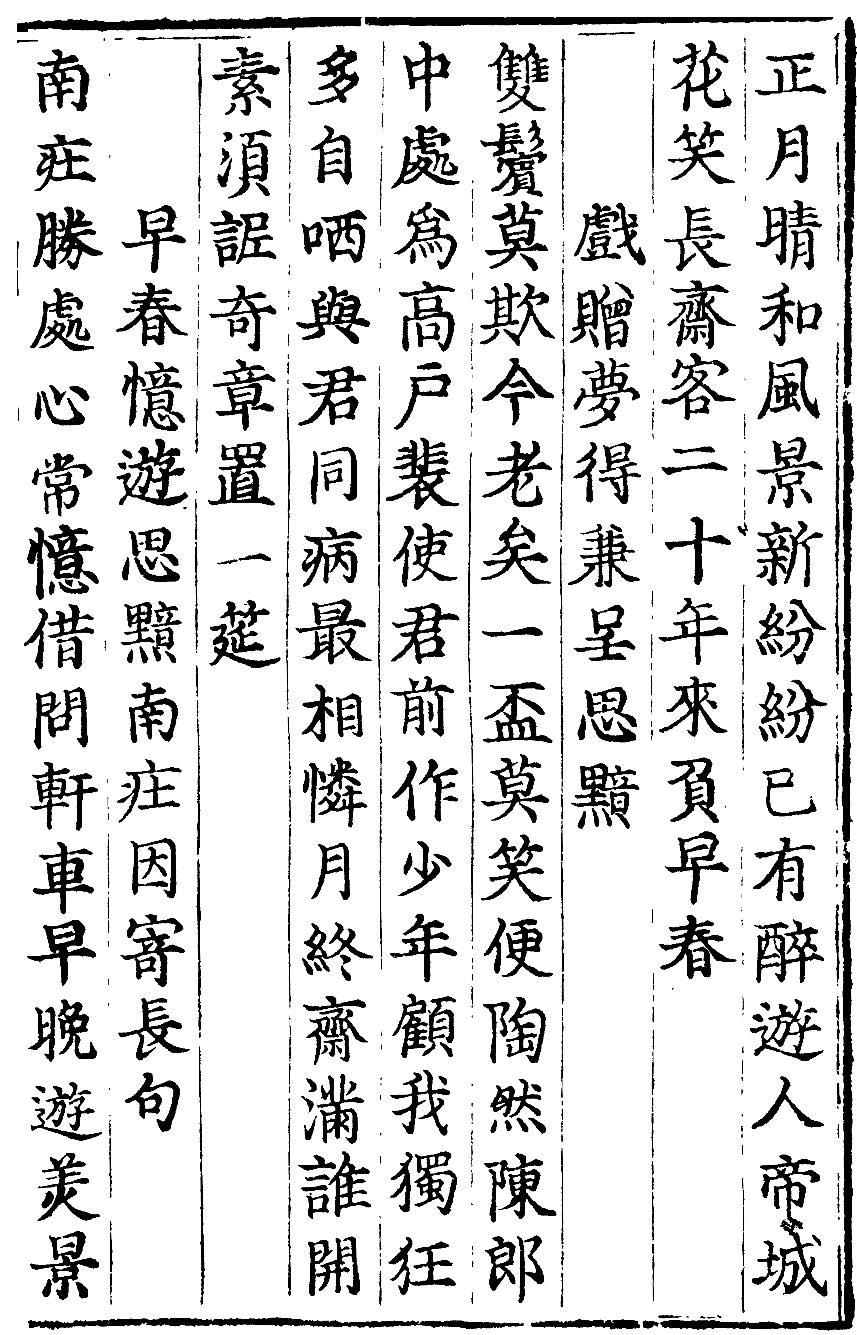 正月晴和風景新紛紛已有醉遊人帝城
花笑長齋客二十年來負早春
戲贈夢得兼呈思黯
雙鬢莫欺今老矣一盃莫笑便陶然陳郎
中處為高户裴使君前作少年顧我獨狂
多自哂與君同病最相憐月終齋滿誰開
素須詎奇章置一莚
早春憶遊思黯南庄因寄長句
南庄勝處心常憶借問軒車早晚遊羙景